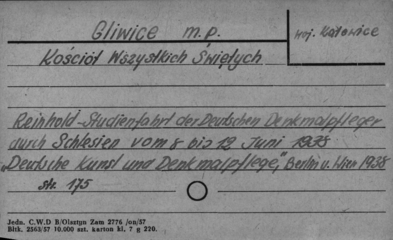 Gliwice m.p.
woj. Katowice
Kościół Wszystkich Świętych
Reinhold-Studienfahrt der Deutschen Denkmalpfleger
durch Schlesien vom 8 bis 12 Juni 1938
"Deutsche Kunst und Denkmalpflege," Berlin u. Wien 1938
str. 175
Jedn. C.W.D B/Olsztyn Zam 2776 /on/57
Bltk. 2563/57 10.000 szt. karton kl. 7 g 220.